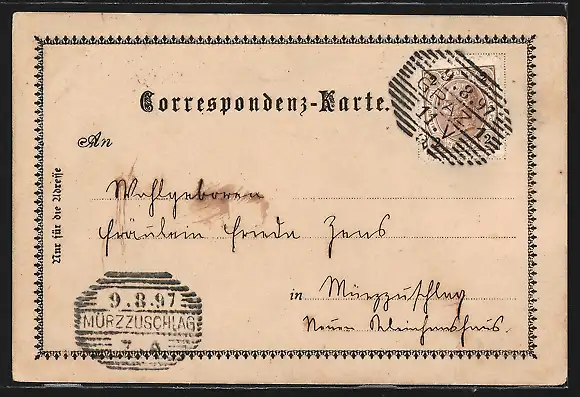 Correspondenz-Karte.
9.8.97
GRAZ
An
Nur für die Adresse
Wohlgeboren
Fräulein Frieda Zens
in Mürzzuschlag
Neuer
9.8.97
MÜRZZUSCHLAG